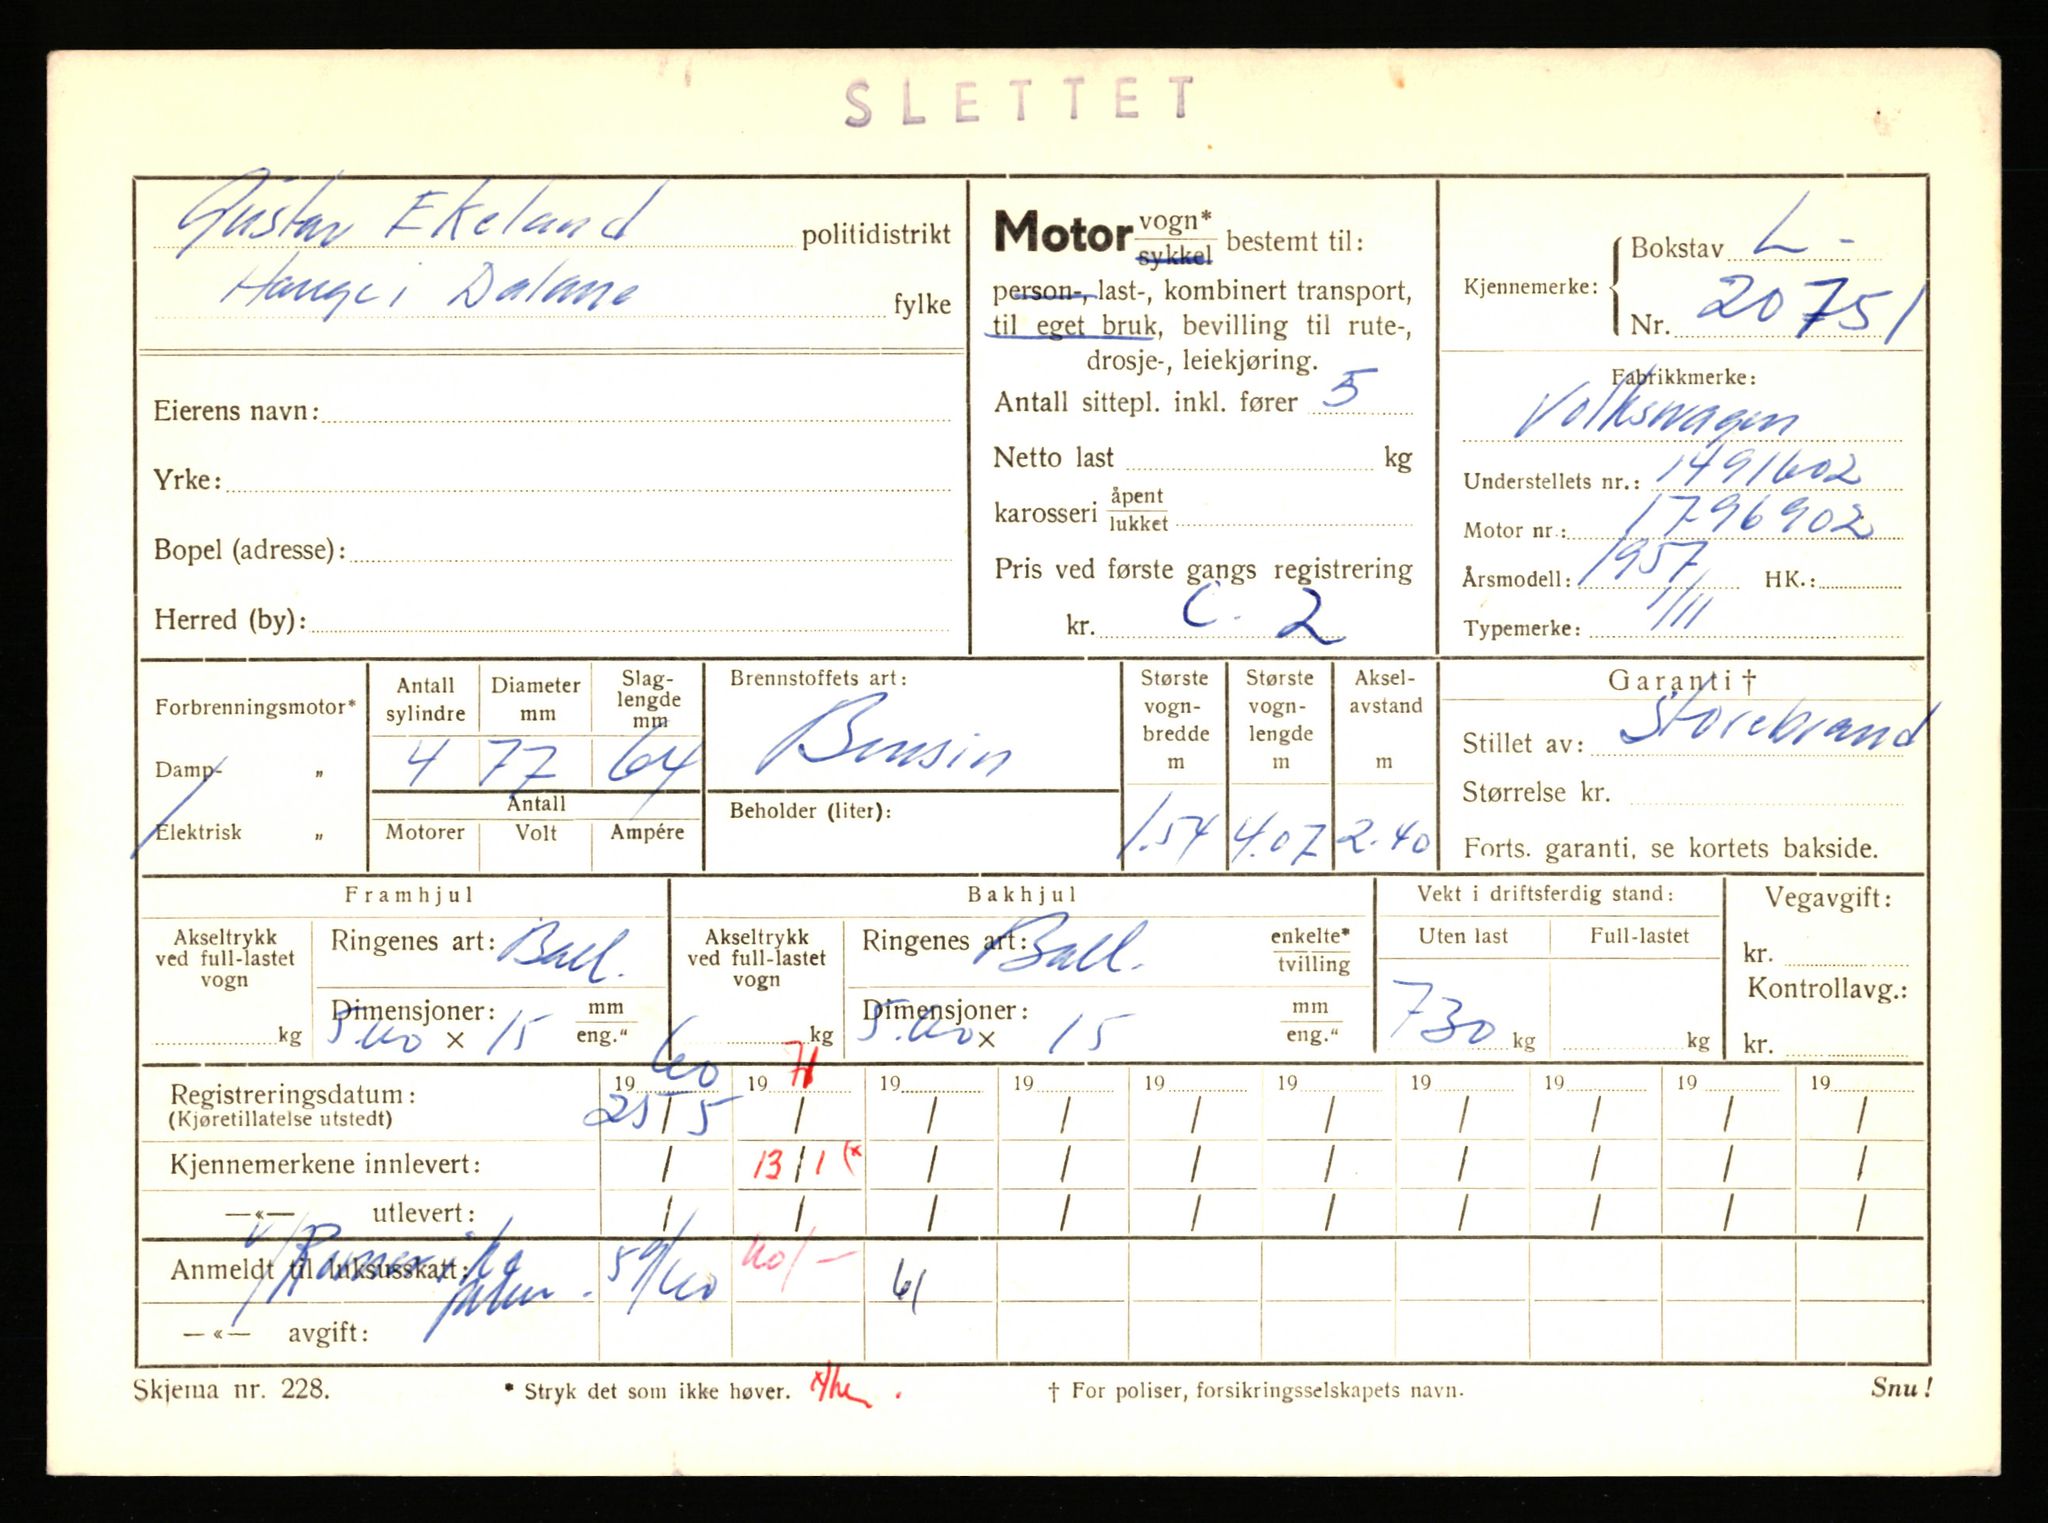 SLETTET
Gustav Ekeland politidistrikt
Hauge i Dalane fylke
Eierens navn:
Yrke:
Bopel (adresse):
Herred (by):
Motor vogn* sykkel bestemt til:
person-, last-, kombinert transport,
til eget bruk, bevilling til rute-,
drosje-, leiekjøring.
Antall sittepl. inkl. fører 5
Netto last kg
karosseri åpent lukket
Pris ved første gangs registrering
kr. C. 2
Kjennemerke: Bokstav L-
Nr. 20751
Fabrikkmerke:
Volkswagen
Understellets nr.: 1491602
Motor nr.: 1796902
Årsmodell: 1957 HK.:
Typemerke: 1/11
Forbrenningsmotor*
Damp- „
Elektrisk „
Antall sylindre Diameter mm Slag-lengde mm
4 77 64
Antall
Motorer Volt Ampére
Brennstoffets art:
Bensin
Beholder (liter):
Største vogn-bredde m
1.54
Største vogn-lengde m
4.07
Aksel-avstand m
2.40
Garanti †
Stillet av: Storebrand
Størrelse kr.
Forts. garanti, se kortets bakside.
Framhjul
Akseltrykk ved full-lastet vogn
kg
Ringenes art: Ball.
Dimensjoner: mm
5.60 x 15 eng."
Bakhjul
Akseltrykk ved full-lastet vogn
kg
Ringenes art: Ball. enkelte* tvilling
Dimensjoner: mm
5.60 x 15 eng."
Vekt i driftsferdig stand:
Uten last Full-lastet
730 kg kg
Vegavgift:
kr.
Kontrollavg.:
kr.
19 60 19 71 19 19 19 19 19 19 19 19
Registreringsdatum: 25/5 / / / / / / / / /
(Kjøretillatelse utstedt)
Kjennemerkene innlevert: / 13/1 (x / / / / / / / /
—«— utlevert: / / / / / / / / / /
Anmeldt til luksusskatt: 59/60 60/- 61
—«— avgift:
Skjema nr. 228.
* Stryk det som ikke høver.
† For poliser, forsikringsselskapets navn.
Snu!